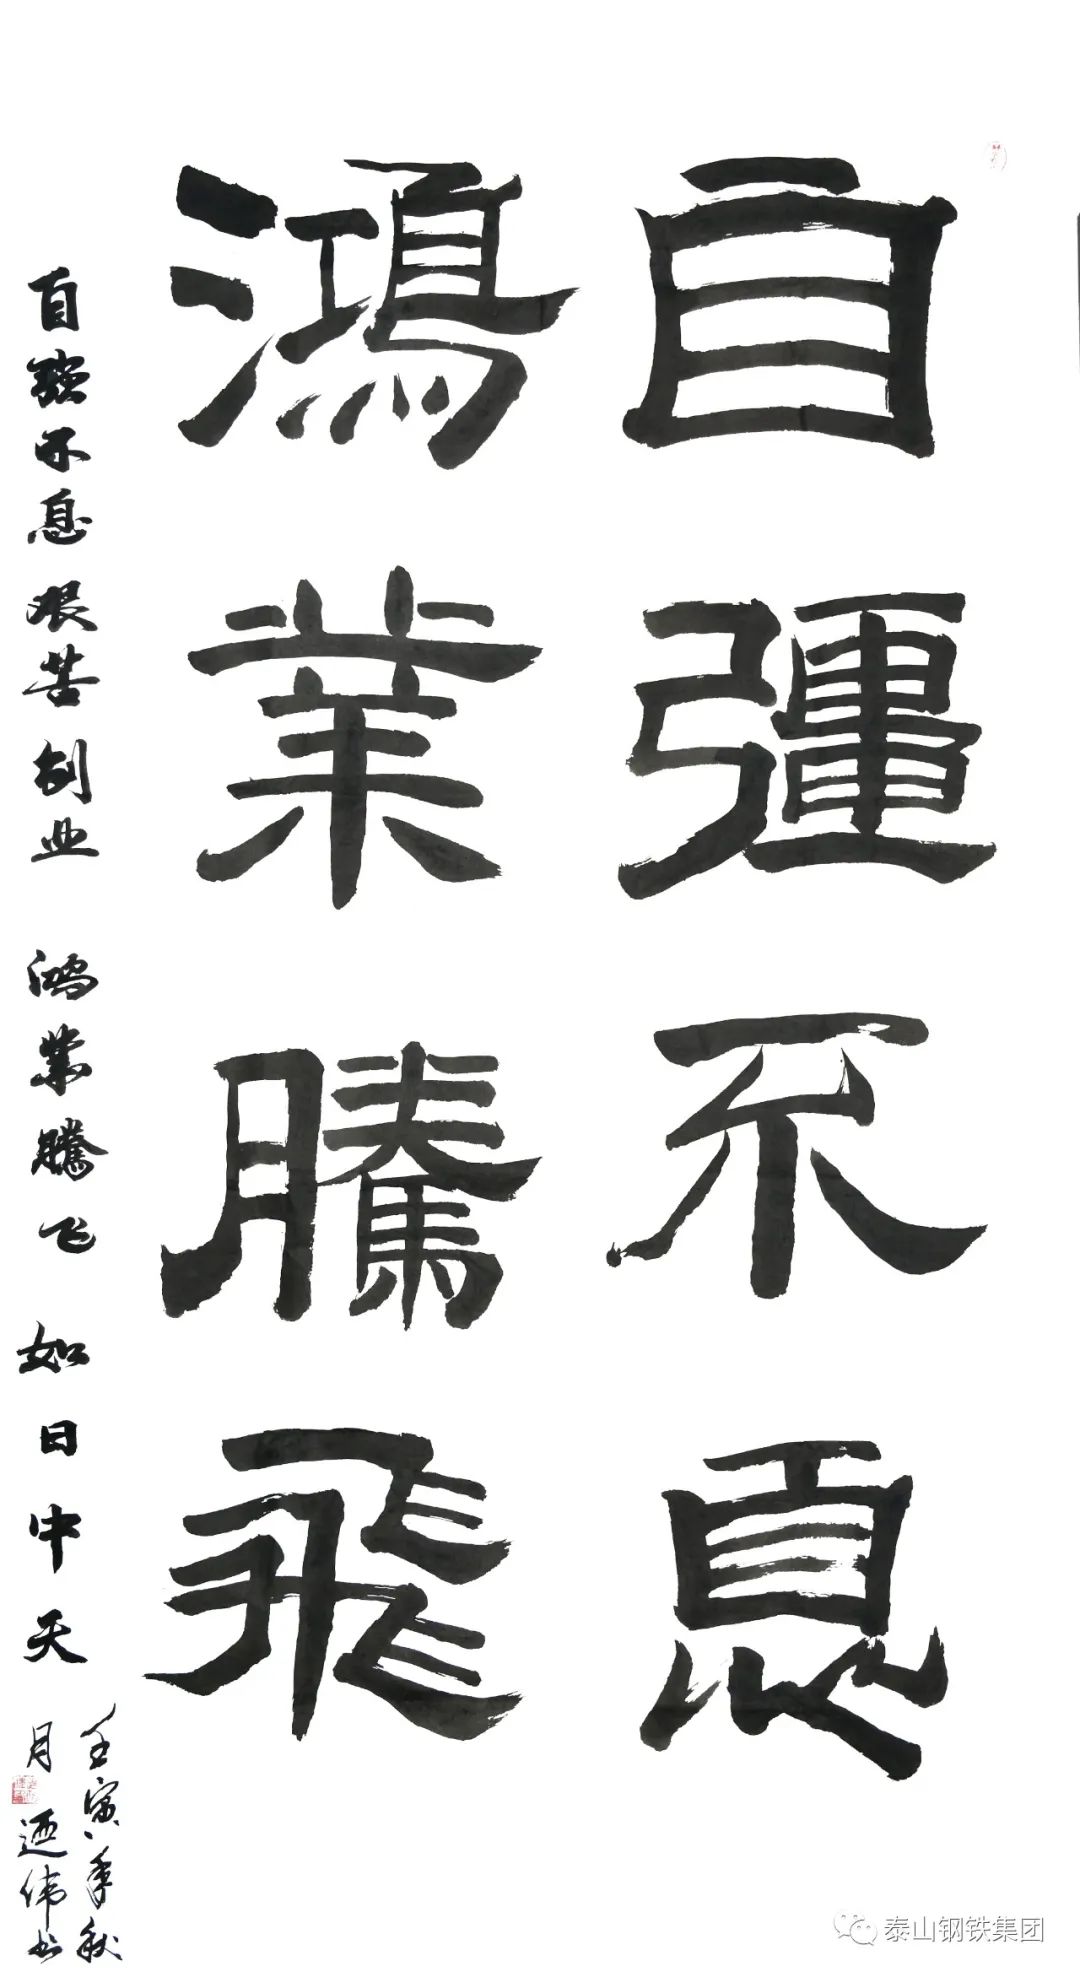 自彊不息
鴻業騰飛
自强不息艰苦创业 鸿業騰飞 如日中天
壬寅年秋
月 迺伟书
泰山钢铁集团